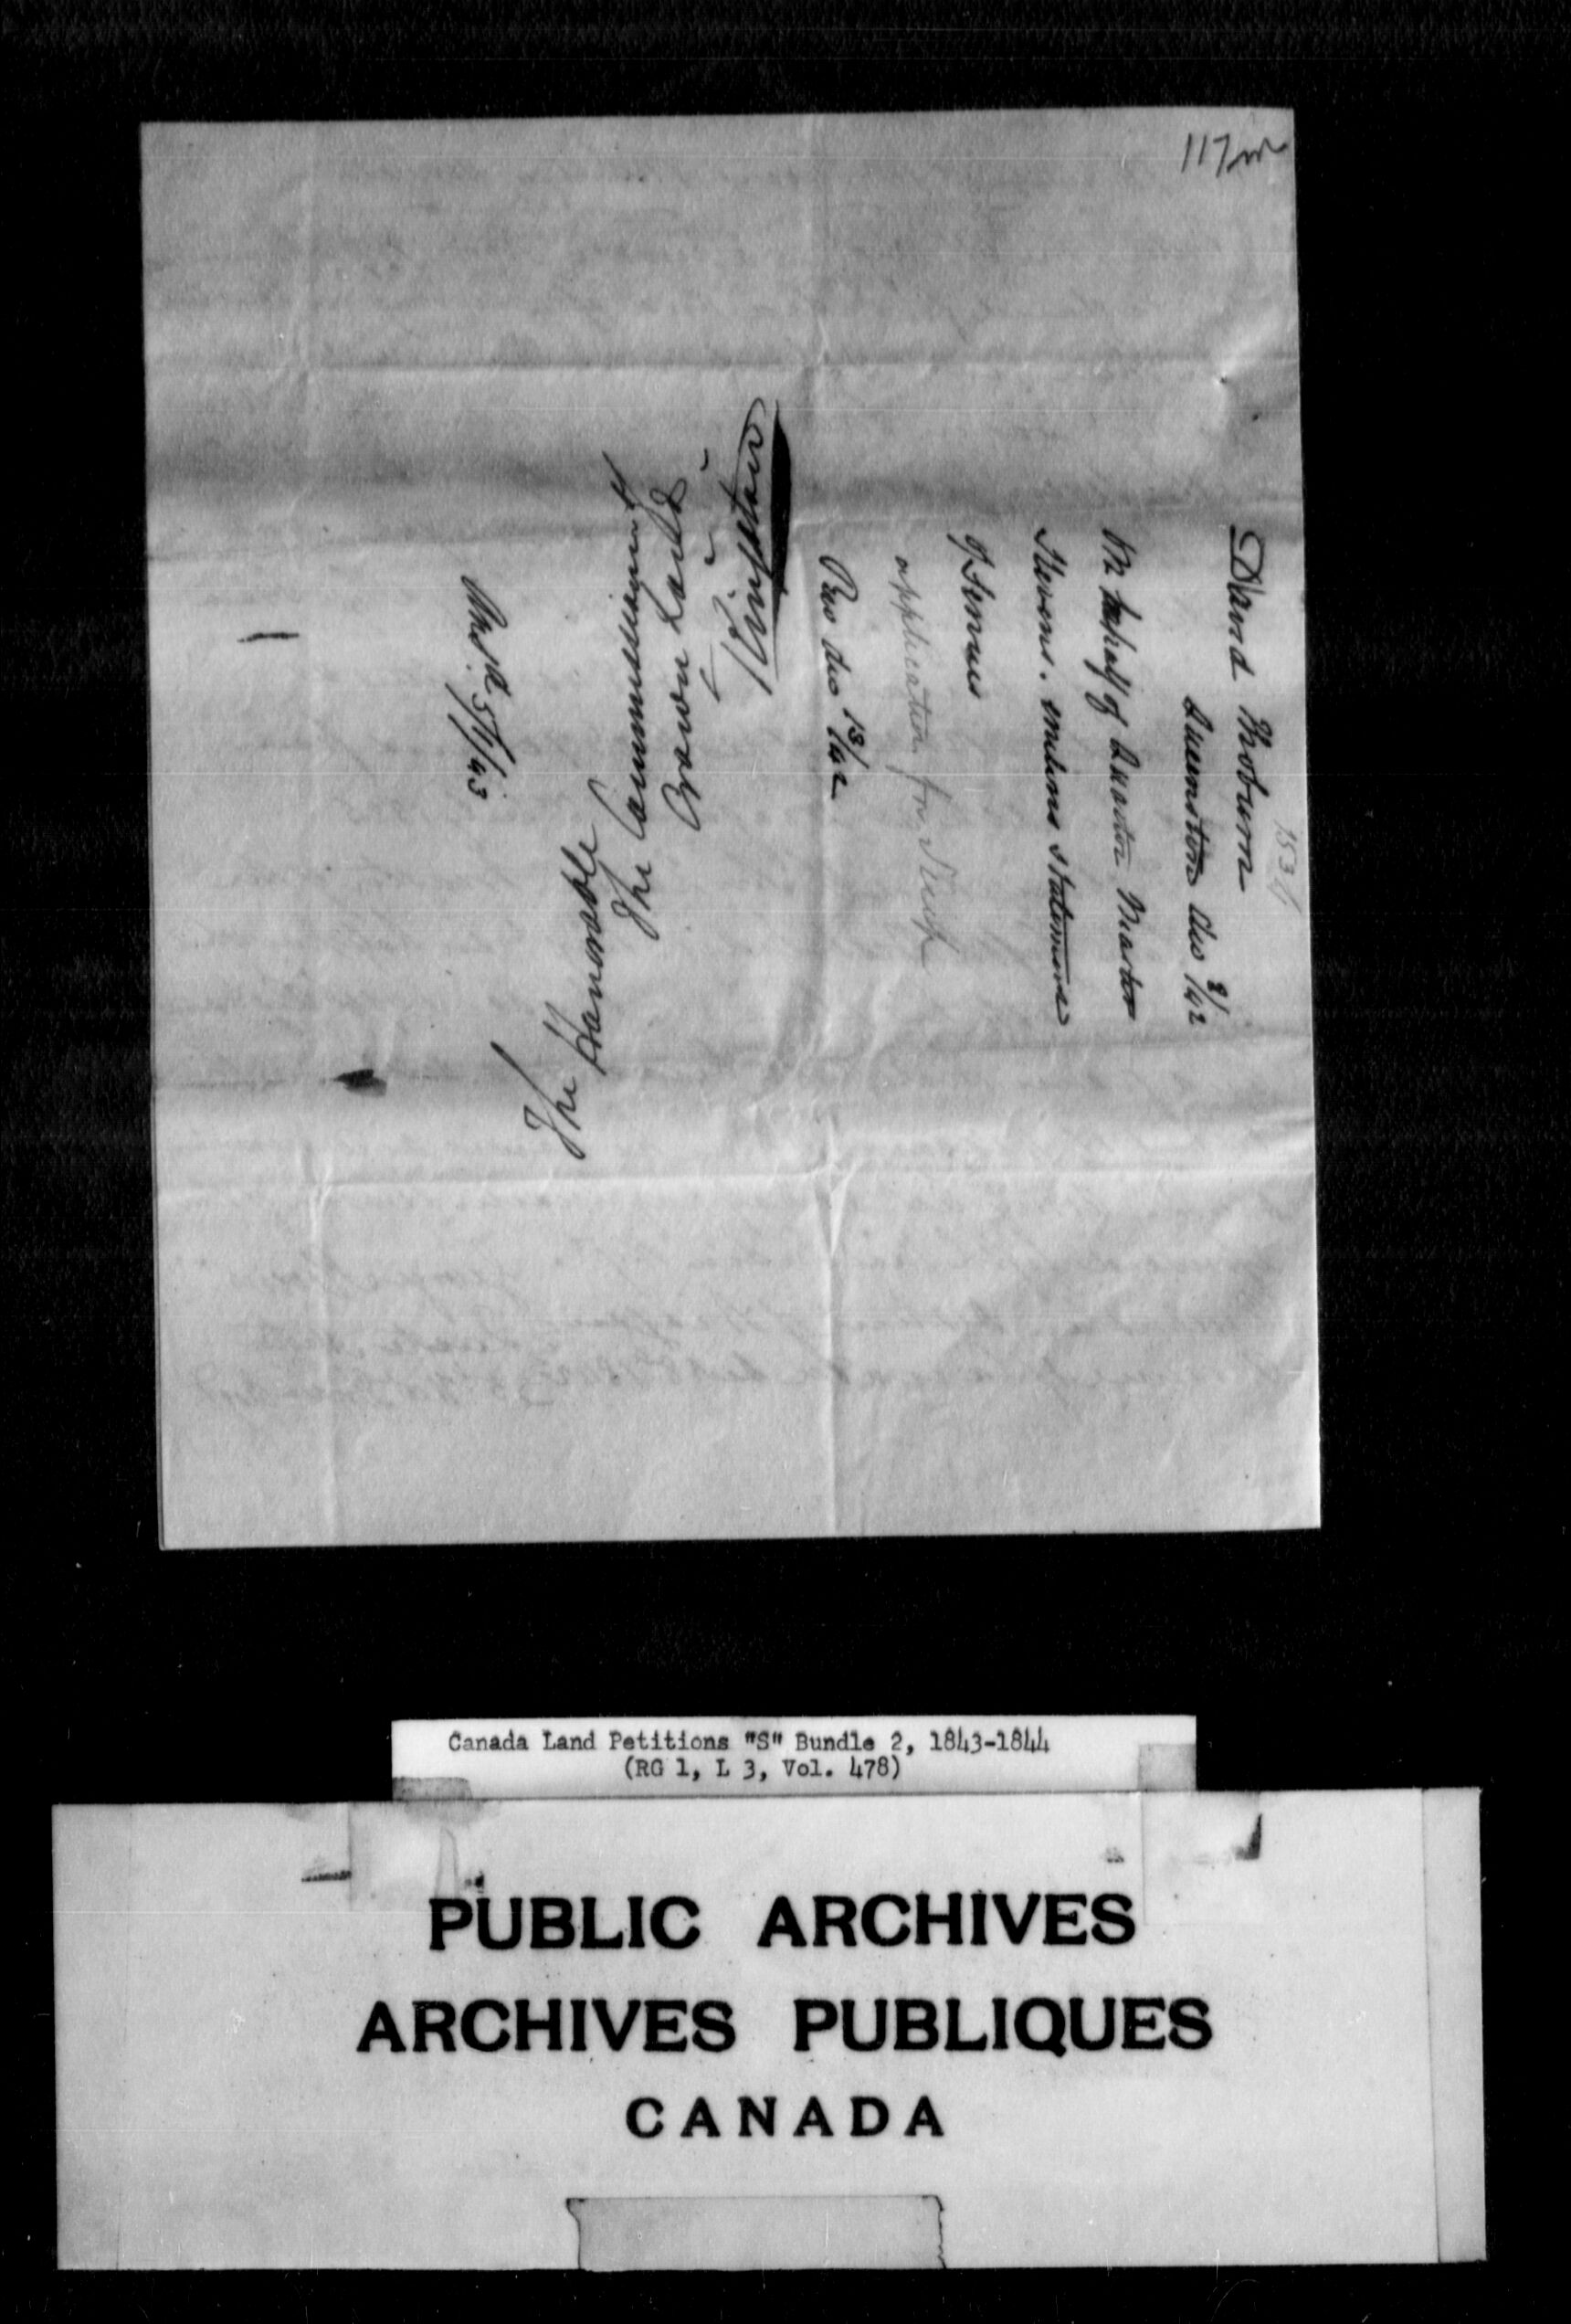 117
153
David Thorburn
Queenston Dec 8/42
In behalf of Quarter Master
Stevens. encloses statement
of Services
application for Scrip
Rec Dec 13/42
The Honorable
The Commissioner of
Crown Lands
Kingston
5/1/43
Canada Land Petitions "S" Bundle 2, 1843-1844
(RG 1, L 3, Vol. 478)
PUBLIC ARCHIVES
ARCHIVES PUBLIQUES
CANADA